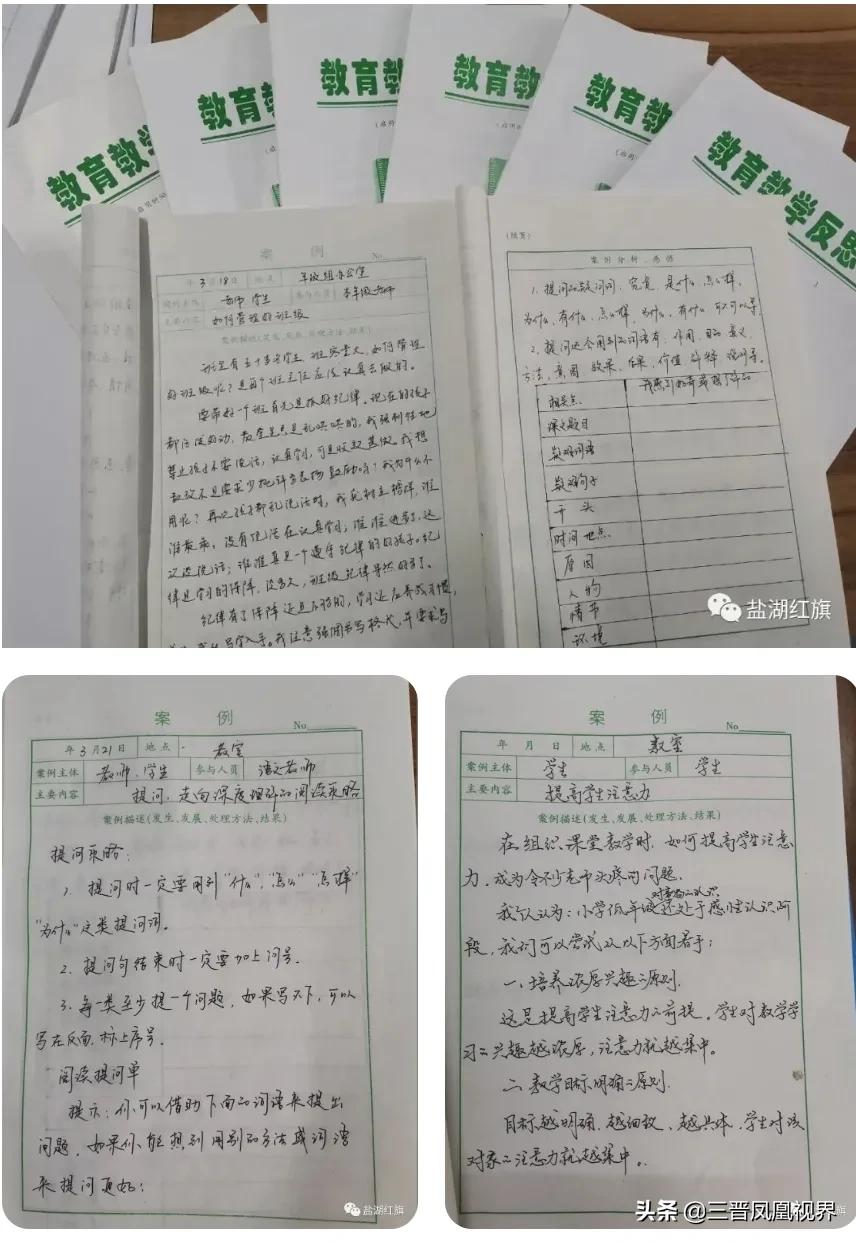 教育教学
教育教
教育教
教育教
教育教
教育教学反思
案 例
No
年 3月18日 地点 年级组办公室
案例主体 教师 学生 参与人员 本年级教师
主要内容 如何管理好班级
案例描述(发生、发展、处理方法、结果)
班里有五十多名学生,班容量大,如何管理
好班级呢?是每个班主任应该认真去做的。
要带好一个班首先是抓好纪律。现在的孩子
都活泼好动,教室里总是乱哄哄的,我强制性地
禁止孩子不要说话,认真学习,可是收效甚微。我想
用呢?再次孩子都乱说话时,我就树立榜样,谁
谁最乖,没有说话在认真学习;谁谁进步了,这
次没说话;谁谁真是一个遵守纪律的好孩子。纪
律是学习的保障,没多久,班级纪律果然好多了。
纪律有了保障还是不够的,学习还应养成习惯,
(续页)
案例分析、感悟
1、提问的疑问词,究竟,是什么,怎么样,
为什么,有什么,怎么样,为什么,有什么,可不可以等
2、提问还会用到的词语有:作用、目的、意义、
方法、意图、效果、结果、价值、
相关点
课文题目
疑难词语
疑难句子
开头
时间 地点
原因
人物
情节
环境
盐湖红旗
案 例
No
年 3月21日 地点 教室
案例主体 教师、学生 参与人员 语文老师
主要内容 提问,走向深度理解的阅读策略
案例描述(发生、发展、处理方法、结果)
提问策略:
1、提问时一定要用到“什么”、“怎么”“怎样”
“为什么”这类提问词。
2、提问句结束时一定要加上问号。
3、每一类至少提一个问题,如果写不下,可以
写在反面,标上序号。
阅读提问单
提示:你可以借助下面的词语来提出
问题,如果你能想到用别的方法或词语
来提问更好:
盐湖红旗
案 例
No
年 月 日 地点 教室
案例主体 学生 参与人员 学生
主要内容 提高学生注意力
案例描述(发生、发展、处理方法、结果)
在组织课堂教学时,如何提高学生注意
力,成为令不少老师头疼的问题.
对事物的认识
我们认为:小学低年级还处于感性认识阶
段,我们可以尝试从以下方面着手:
一、培养浓厚兴趣的原则.
这是提高学生注意力的前提。学生对教学学
习的兴趣越浓厚,注意力就越集中。
二、教学目标明确的原则.
目标越明确、越细致、越具体,学生对该
对象的注意力就越集中。
头条 @三晋凤凰视界